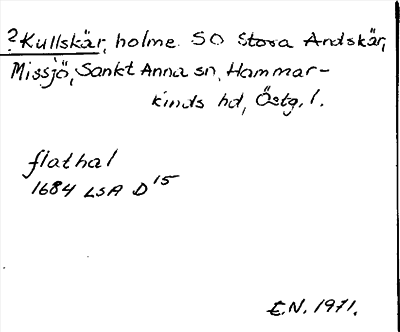 ?Kullskär, holme SO Stora Andskär,
Missjö, Sankt Anna sn, Hammar-
kinds hd, Östg. l.
flathal
1684 LSA D15
E.N. 1971.